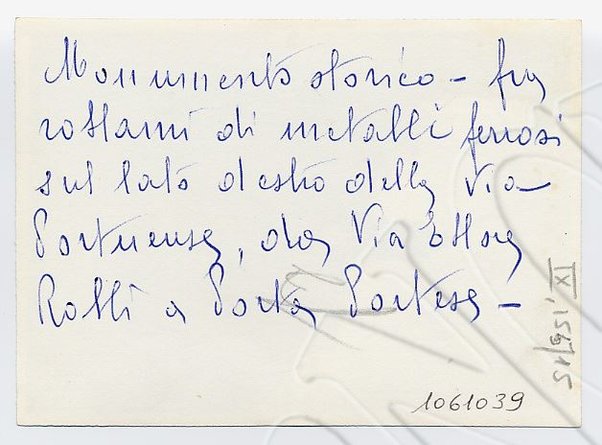 Monumento storico - fra
rottami di metalli ferrosi
sul lato destro della Via
Portuense, da Via Ettore
Rolli a Porta Portese -
XI, 156, 15
1061039